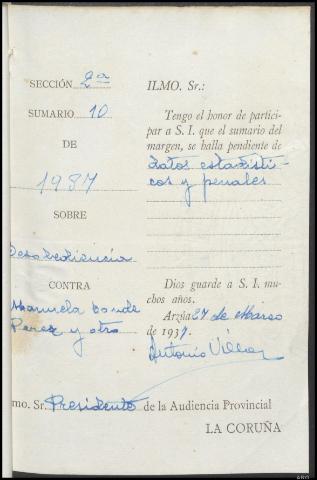 SECCIÓN 2ª
SUMARIO 10
DE
1937
SOBRE
Desobediencia
CONTRA
Manuela Conde
Perez y otro
ILMO. Sr.:
Tengo el honor de partici-
par a S. I. que el sumario del
margen, se halla pendiente de
datos estadisti-
cos y penales
Dios guarde a S. I. mu-
chos años.
Arzúa 27 de Marzo
de 1937.
Antonio
mo. Sr. Presidente de la Audiencia Provincial
LA CORUÑA